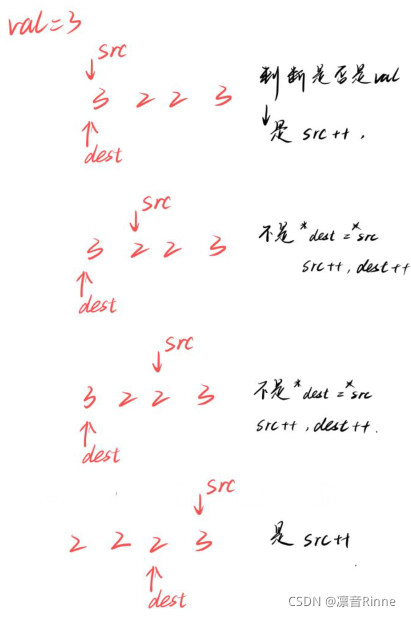 val=3
src
3 2 2 3 判断是否是val
↓是 src++,
dest
src
3 2 2 3 不是 *dest = *src
src++, dest++
dest
src
3 2 2 3 不是 *dest = *src
src++, dest++.
dest
src
2 2 2 3 是 src++
dest
CSDN @凛音Rinne